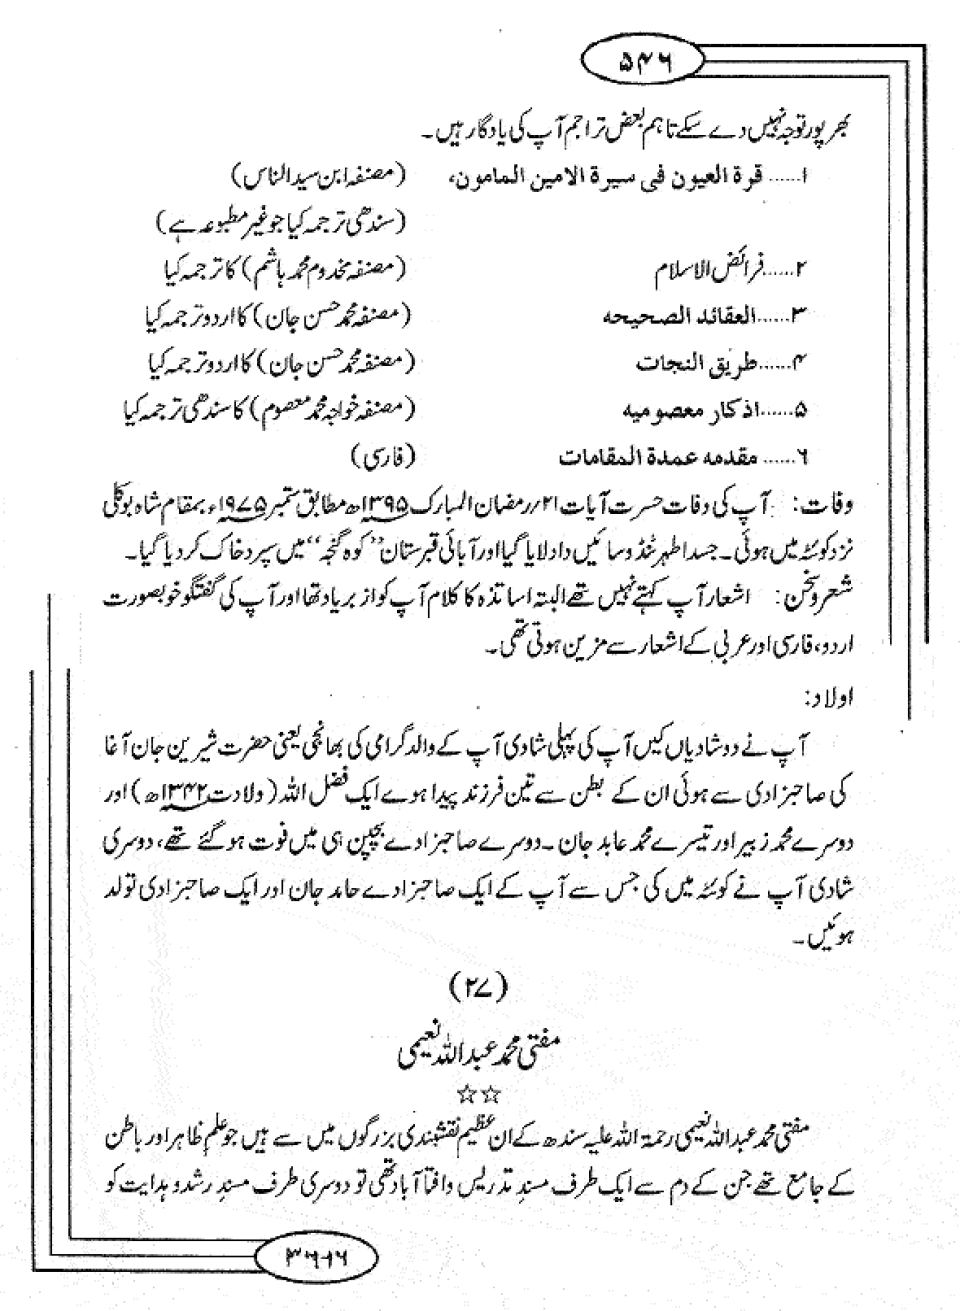 ۵۴۶
بھرپور توجہ نہیں دے سکے تاہم بعض تراجم آپ کی یادگار ہیں۔
۱...... قرة العیون فی سیرة الامین المامون، (مصنفہ ابن سید الناس)
(سندھی ترجمہ کیا جو غیر مطبوعہ ہے)
۲......فرائض الاسلام (مصنفہ مخدوم محمد ہاشم) کا ترجمہ کیا
۳......العقائد الصحیحہ (مصنفہ محمد حسن جان) کا اردو ترجمہ کیا
۴......طریق النجات (مصنفہ محمد حسن جان) کا اردو ترجمہ کیا
۵......اذکار معصومیہ (مصنفہ خواجہ محمد معصوم) کا سندھی ترجمہ کیا
۶...... مقدمہ عمدة المقامات (فارسی)
وفات: آپ کی وفات حسرت آیات ۲۱/رمضان المبارک ۱۳۹۵ھ مطابق ستمبر ۱۹۷۵ء بمقام شاہ بوکلی
نزد کوئٹہ میں ہوئی۔ جسد اطہر ٹنڈو سائیں داد لایا گیا اور آبائی قبرستان ’’کوہ گنجہ‘‘ میں سپرد خاک کر دیا گیا۔
شعر و سخن: اشعار آپ کہتے نہیں تھے البتہ اساتذہ کا کلام آپ کو از بر یاد تھا اور آپ کی گفتگو خوبصورت
اردو، فارسی اور عربی کے اشعار سے مزین ہوتی تھی۔
اولاد:
آپ نے دو شادیاں کیں آپ کی پہلی شادی آپ کے والد گرامی کی بھانجی یعنی حضرت شیرین جان آغا
کی صاحبزادی سے ہوئی ان کے بطن سے تین فرزند پیدا ہوے ایک فضل اللہ (ولادت ۱۳۴۲ھ) اور
دوسرے محمد زبیر اور تیسرے محمد عابد جان۔ دوسرے صاحبزادے بچپن ہی میں فوت ہوگئے تھے، دوسری
شادی آپ نے کوئٹہ میں کی جس سے آپ کے ایک صاحبزادے حامد جان اور ایک صاحبزادی تولد
ہوئیں۔
(۲۷)
مفتی محمد عبداللہ نعیمی
☆☆
مفتی محمد عبداللہ نعیمی رحمۃ اللہ علیہ سندھ کے ان عظیم نقشبندی بزرگوں میں سے ہیں جو علمِ ظاہر اور باطن
کے جامع تھے جن کے دم سے ایک طرف مسندِ تدریس و افتآ آباد تھی تو دوسری طرف مسندِ رشد و ہدایت کو